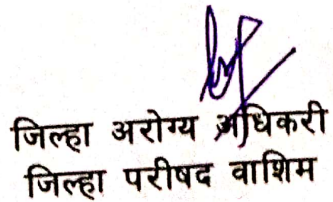 जिल्हा अरोग्य अधिकरी
जिल्हा परीषद वाशिम